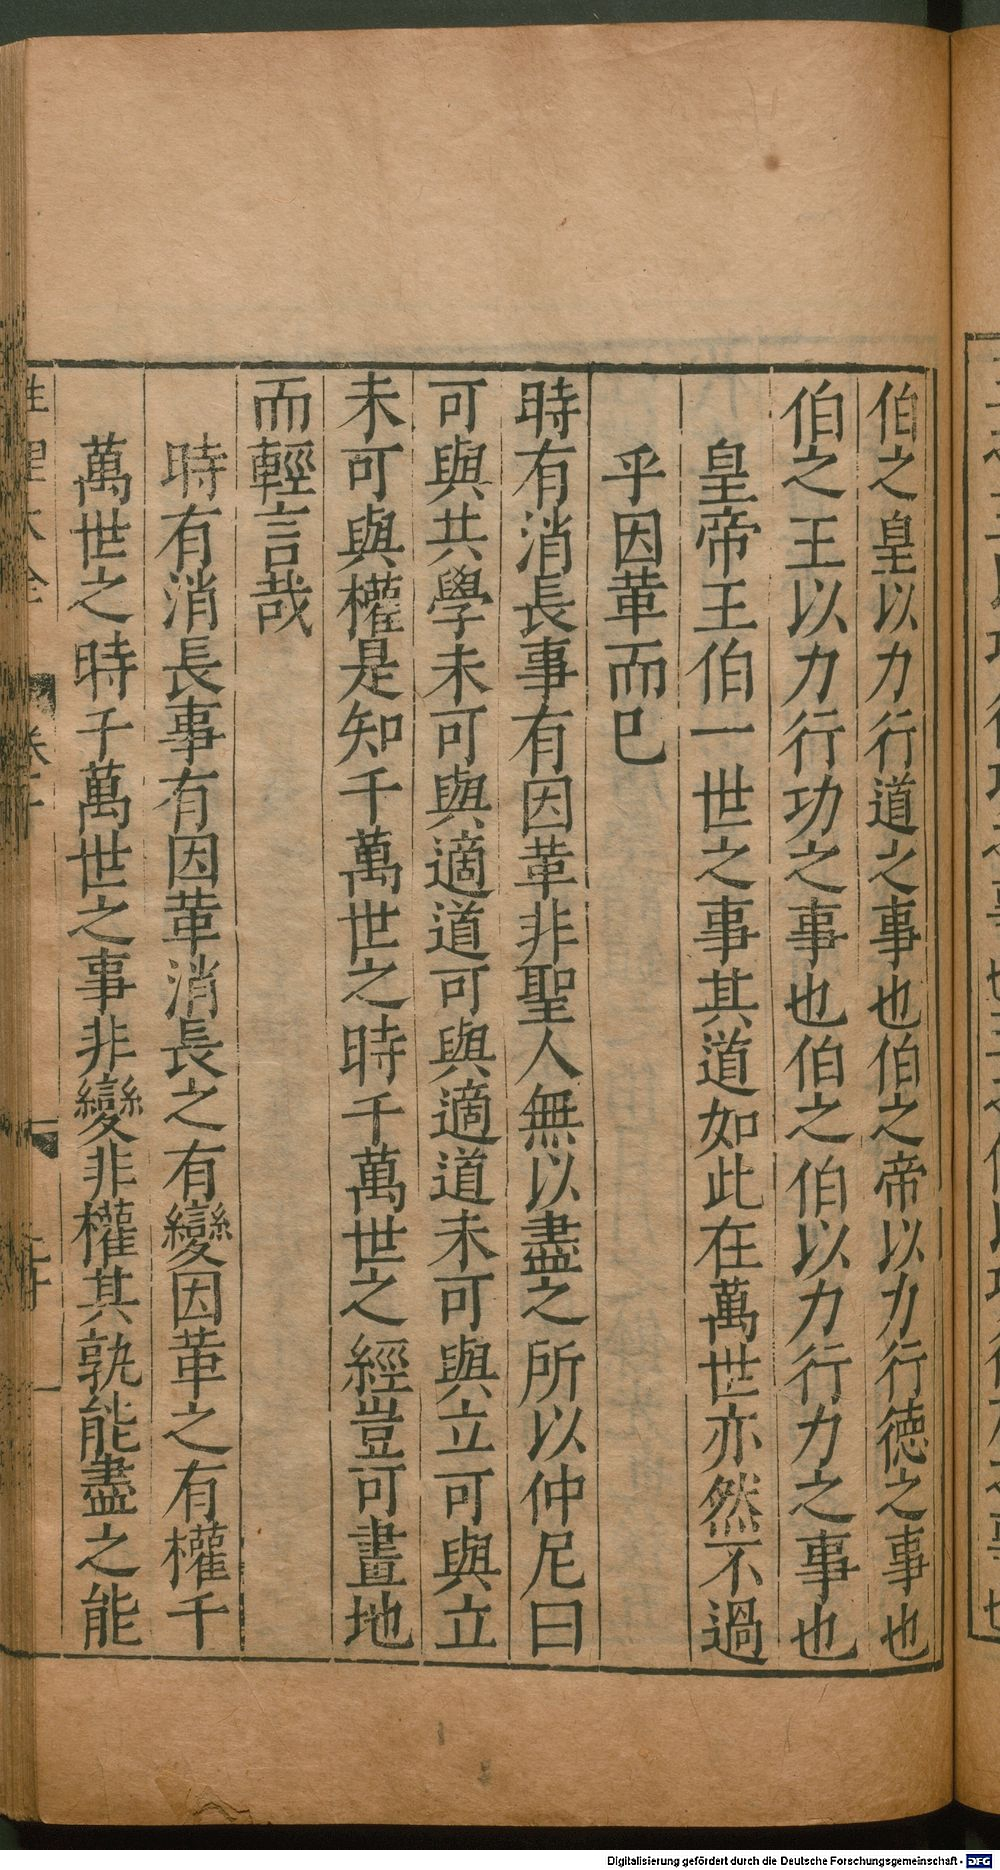 伯之皇以力行道之事也伯之帝以力行德之事也
伯之王以力行功之事也伯之伯以力行力之事也
皇帝王伯一世之事其道如此在萬世亦然不過
乎因革而已
時有消長事有因革非聖人無以盡之所以仲尼曰
可與共學未可與適道可與適道未可與立可與立
未可與權是知千萬世之時千萬世之經豈可畫地
而輕言哉
時有消長事有因革消長之有變因革之有權千
萬世之時千萬世之事非變非權其孰能盡之能
性理大全
Digitalisierung gefördert durch die Deutsche Forschungsgemeinschaft - DFG